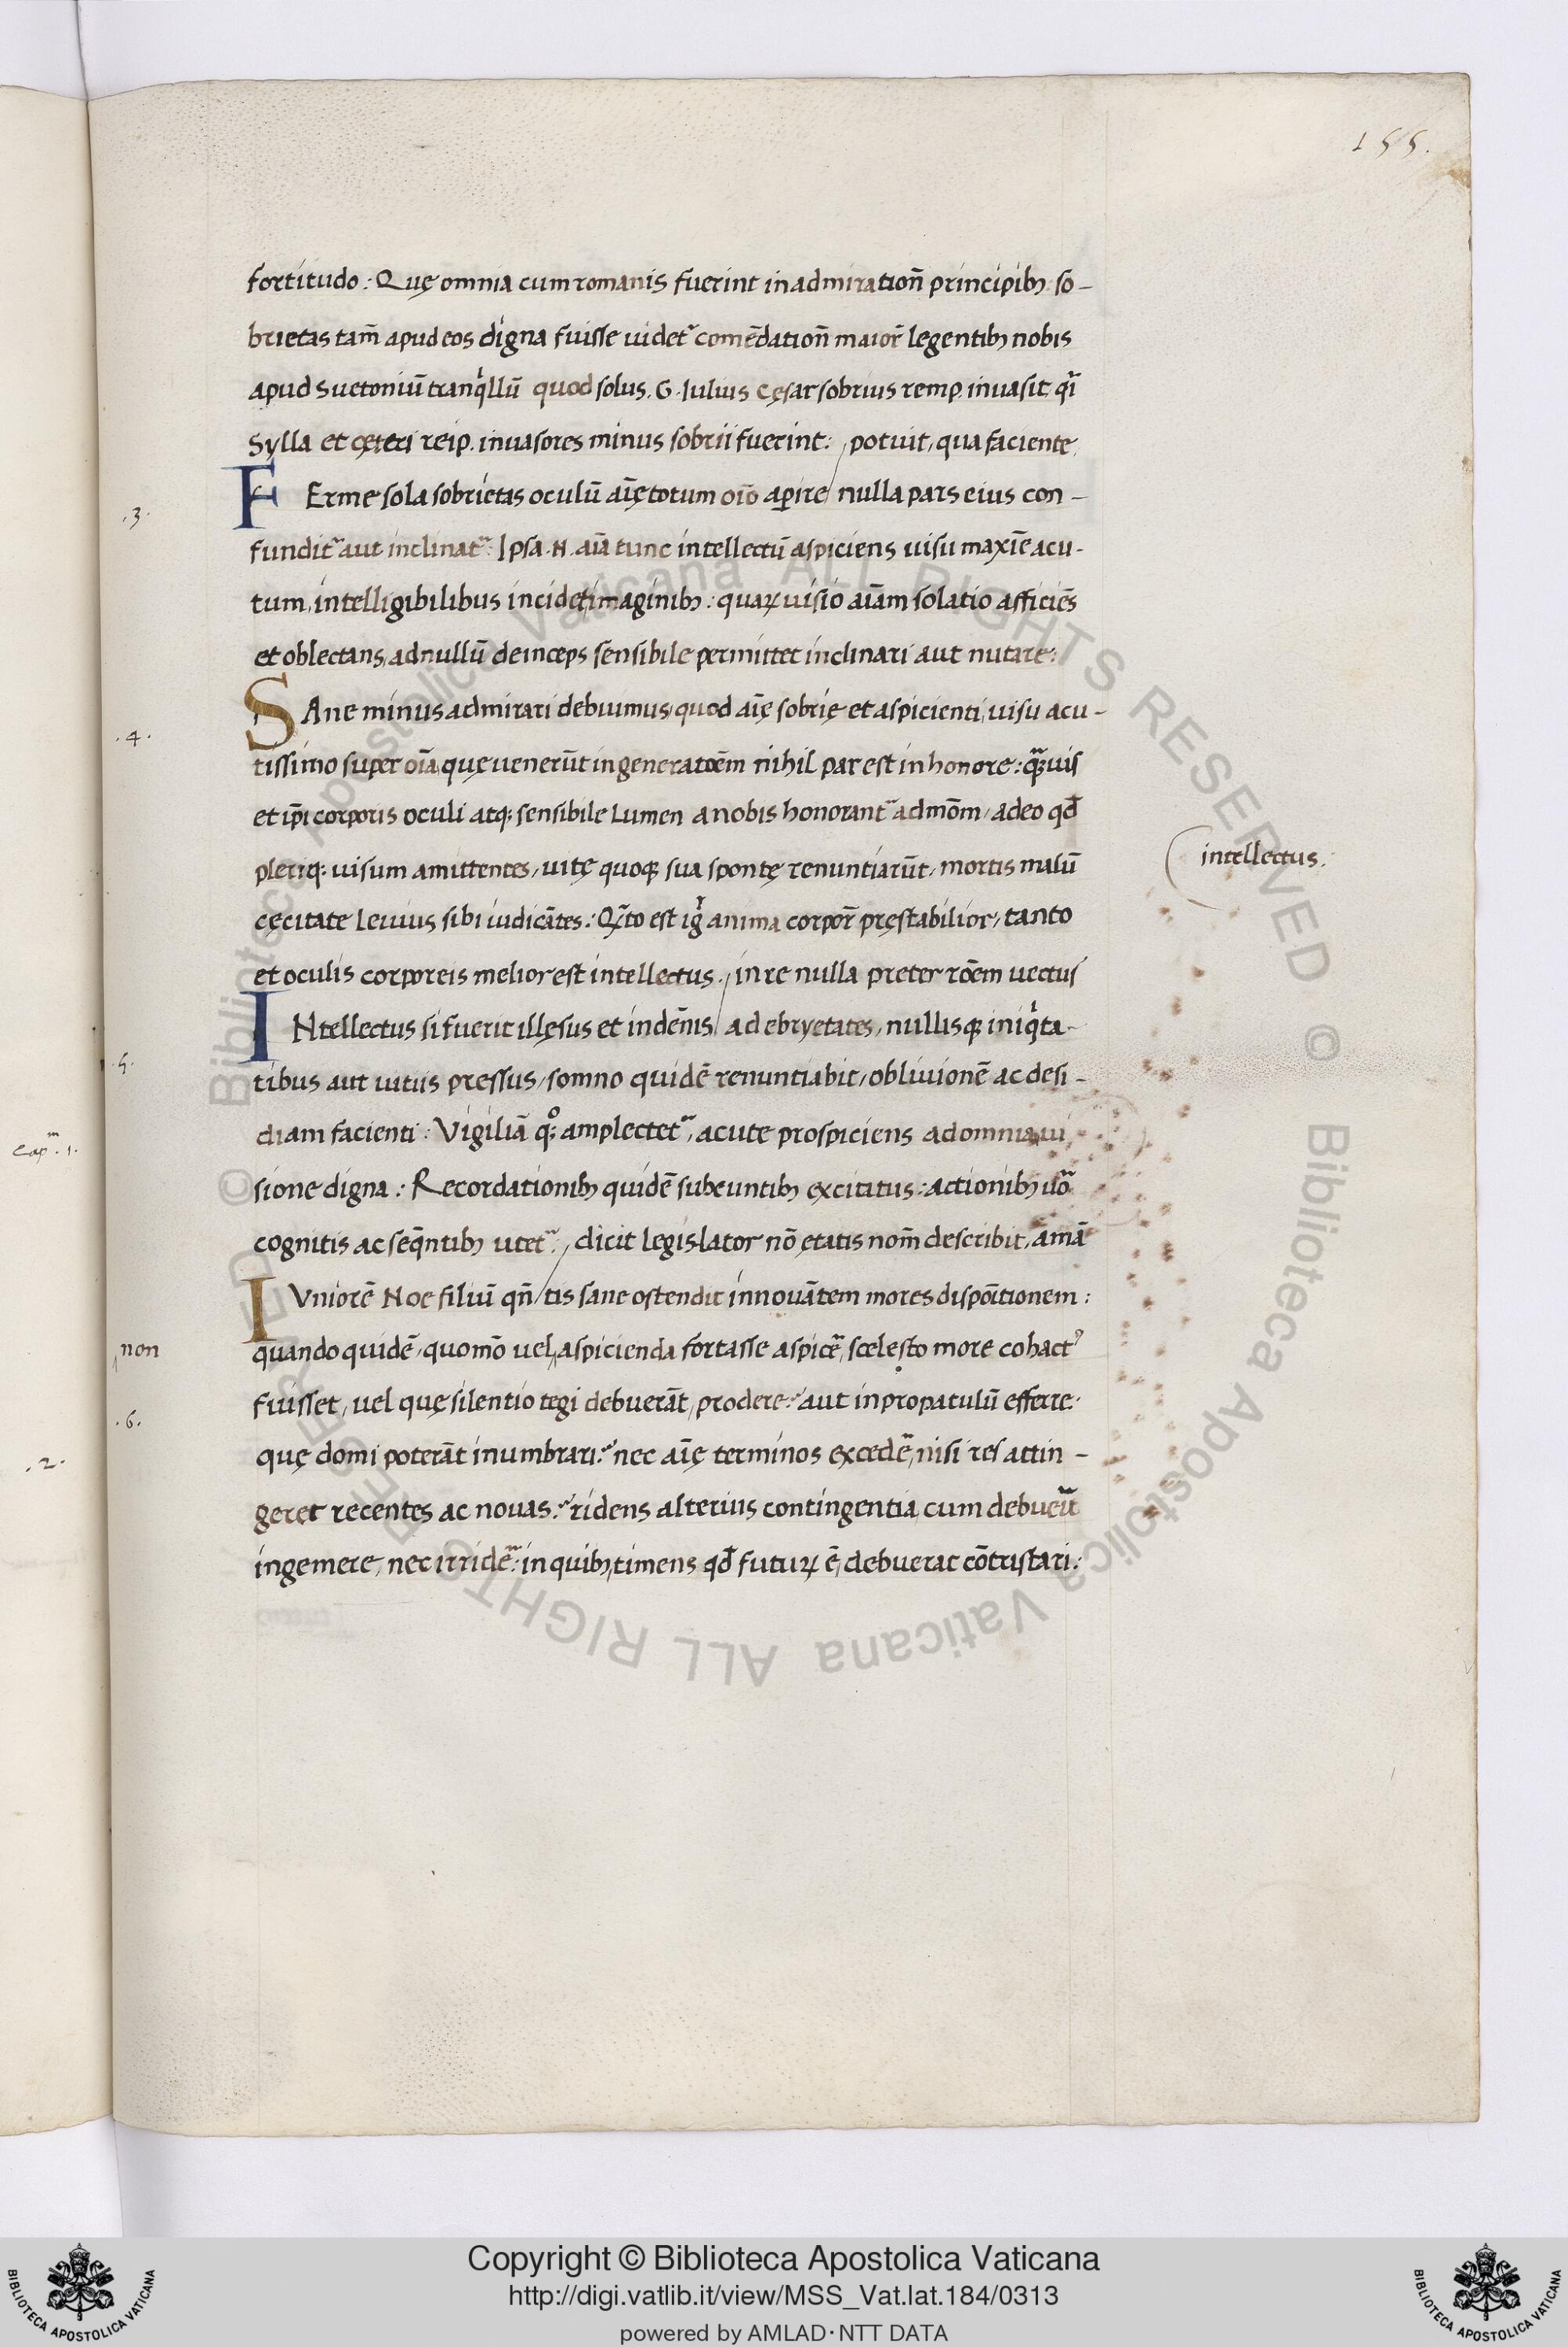 155.
fortitudo : Quę omnia cum romanis fuerint in admirationē principibꝫ so-
brietas tam̄ apud eos digna fuisse uidet᷑ comēdationē maiorē legentibꝫ nobis
apud Suetoniū tranqͥllū quod solus . G . Iulius Cęsar sobrius remp. inuasit qͣi
Sylla et cęteri reip. inuasores minus sobrii fuerint : potuit, qua faciente
.3.
FErme sola sobrietas oculū aīę totum oīo aperire nulla pars eius con-
fundit᷑ aut inclinat᷑ : Ipsa .N. aīa tunc intellectū aspiciens uisu maxīe acu-
tum, intelligibilibus incidet imaginibꝫ : quaꝝ uisio aīam solatio afficiēs
et oblectans, ad nullū deinceps sensibile permittet inclinari aut nutare :
.4.
SAne minus admirari debuimus, quod aīę sobrię et aspicienti, uisu acu-
tissimo super oīa, quę uenerūt in generatōem nihil par est in honore : qͣꝫuis
et ip̄i corporis oculi atq; sensibile lumen a nobis honorant᷑ admōm, adeo qd̄
intellectus.
pleriq; uisum amittentes, uitę quoqꝫ sua spontę renuntiarūt, mortis malū
cęcitate leuius sibi iudicātes : Qͣto est igͥ anima corpor̄ pręstabilior, tanto
et oculis corporeis melior est intellectus . in re nulla preter rōem uectus
.5.
INtellectus si fuerit illęsus et indēnis ad ebryetates, nullisqꝫ iniqͥta-
tibus aut uitiis pressus, somno quidē renuntiabit, obliuionē ac desi-
diam facienti : Vigiliā qͦ; amplectet᷑, acute prospiciens ad omnia ui
Cap.ᵐ 1.
sione digna : Recordationibꝫ quidē subeuntibꝫ excitatus : actionibꝫ uͦo
cognitis ac seq̄ntibꝫ utet᷑ . dicit legislator nō ętatis nom̄ describit, amā
IVniorē Noe filiū qn̄ tis sane ostendit innouātem mores dispōitionem :
non
quando quidē, quomō uel, aspicienda fortasse aspicē᷑, scelesto more cohactꝰ
fuisset, uel quę silentio tegi debuerāt, prodere : aut in propatulū efferre :
.6.
quę domi poterāt inumbrari : nec aīę terminos excedē᷑, nisi res attin-
.2.
geret recentes ac nouas : ridens alterius contingentia, cum debueͣit
ingemere, nec irridē᷑ : in quibꝫ, timens qd̄ futuꝝ ē, debuerat cōtristari :
© Biblioteca Apostolica Vaticana ALL RIGHTS RESERVED © Biblioteca Apostolica Vaticana ALL RIGHTS RESERVED
Copyright © Biblioteca Apostolica Vaticana
http://digi.vatlib.it/view/MSS_Vat.lat.184/0313
powered by AMLAD · NTT DATA
BIBLIOTECA APOSTOLICA VATICANA
BIBLIOTECA APOSTOLICA VATICANA